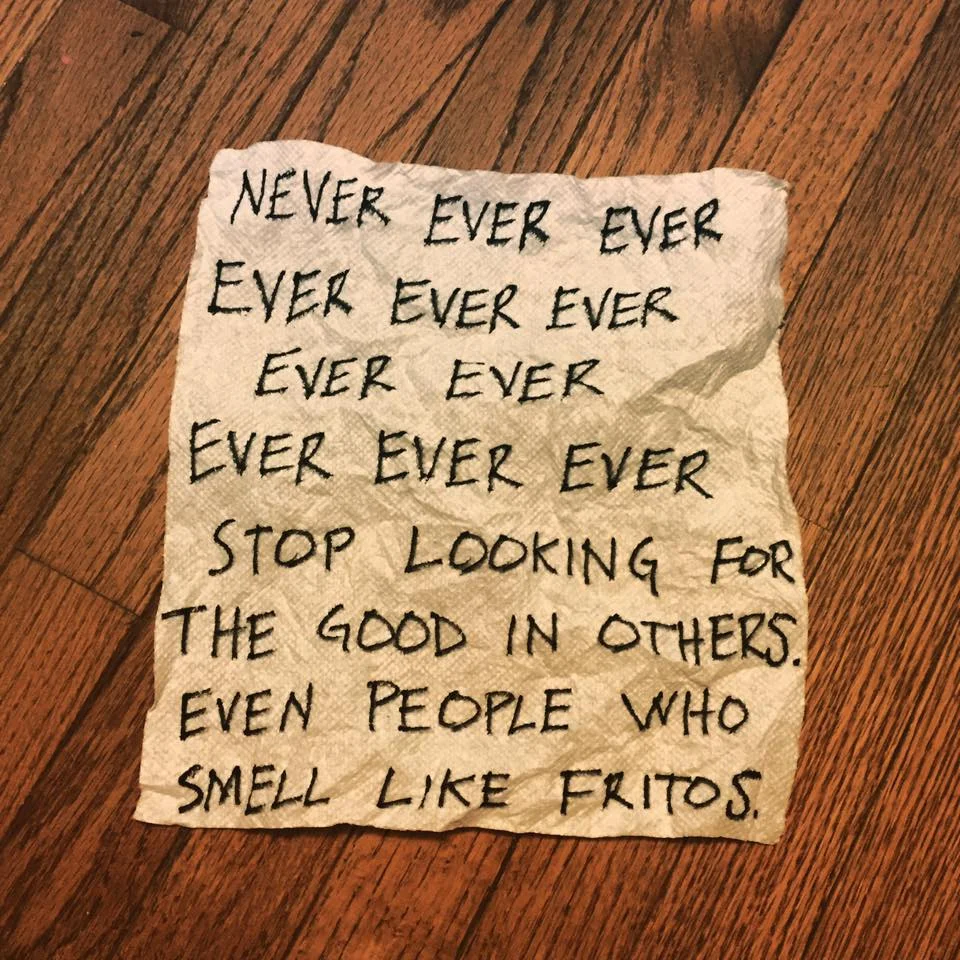 NEVER EVER EVER
EVER EVER EVER
EVER EVER
EVER EVER EVER
STOP LOOKING FOR
THE GOOD IN OTHERS.
EVEN PEOPLE WHO
SMELL LIKE FRITOS.